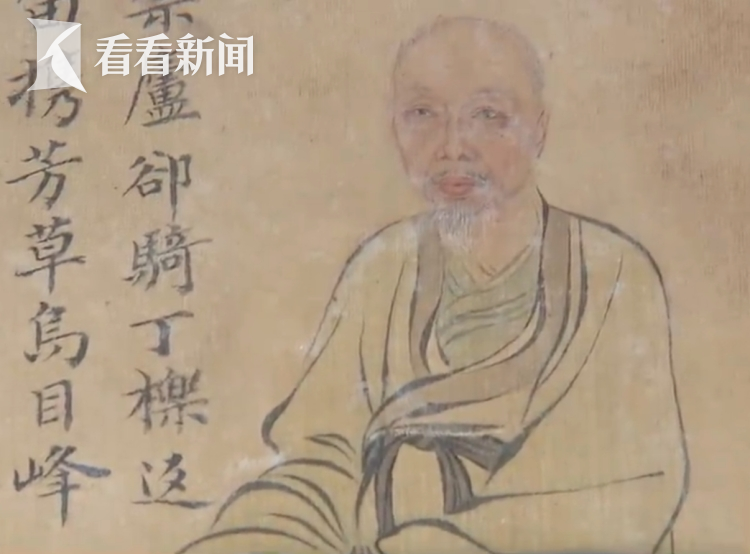 看看新闻
廬卻騎丁櫟
芳草烏目峰